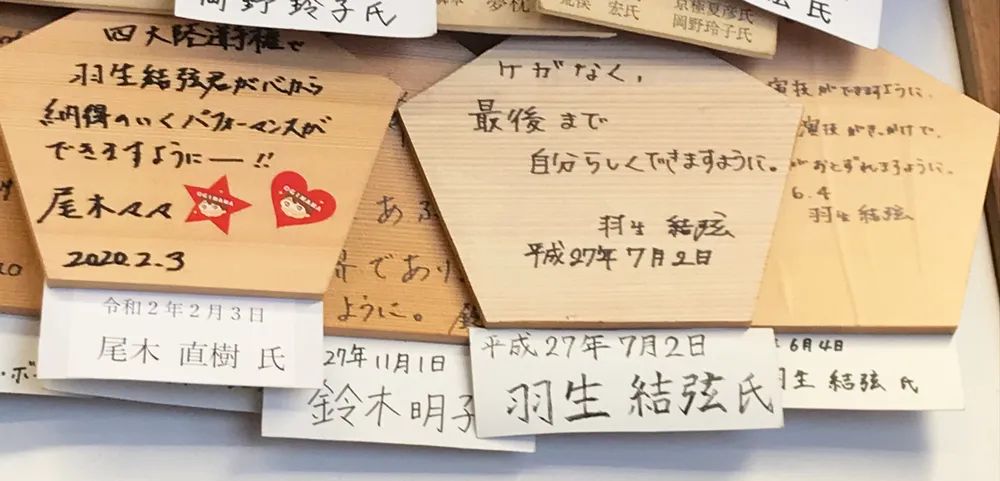 岡野 玲子 氏
夢枕
宏氏
京極夏彦氏
岡野玲子氏
氏
四大陸選手権で
羽生結弦君が心から
納得のいくパフォーマンスが
できますようにー!!
尾木々々
OGIMAMA
OGIMAMA
2020.2.3
令和2年2月3日
尾木 直樹 氏
あ
であり
ように。
27年11月1日
鈴木明子
ケガなく、
最後まで
自分らしくできますように。
羽生 結弦
平成27年7月2日
平成27年7月2日
羽生 結弦 氏
演技ができますように。
演技がきっかけで、
がおとずれますように。
6.4
羽生 結弦
6月4日
生 結弦 氏